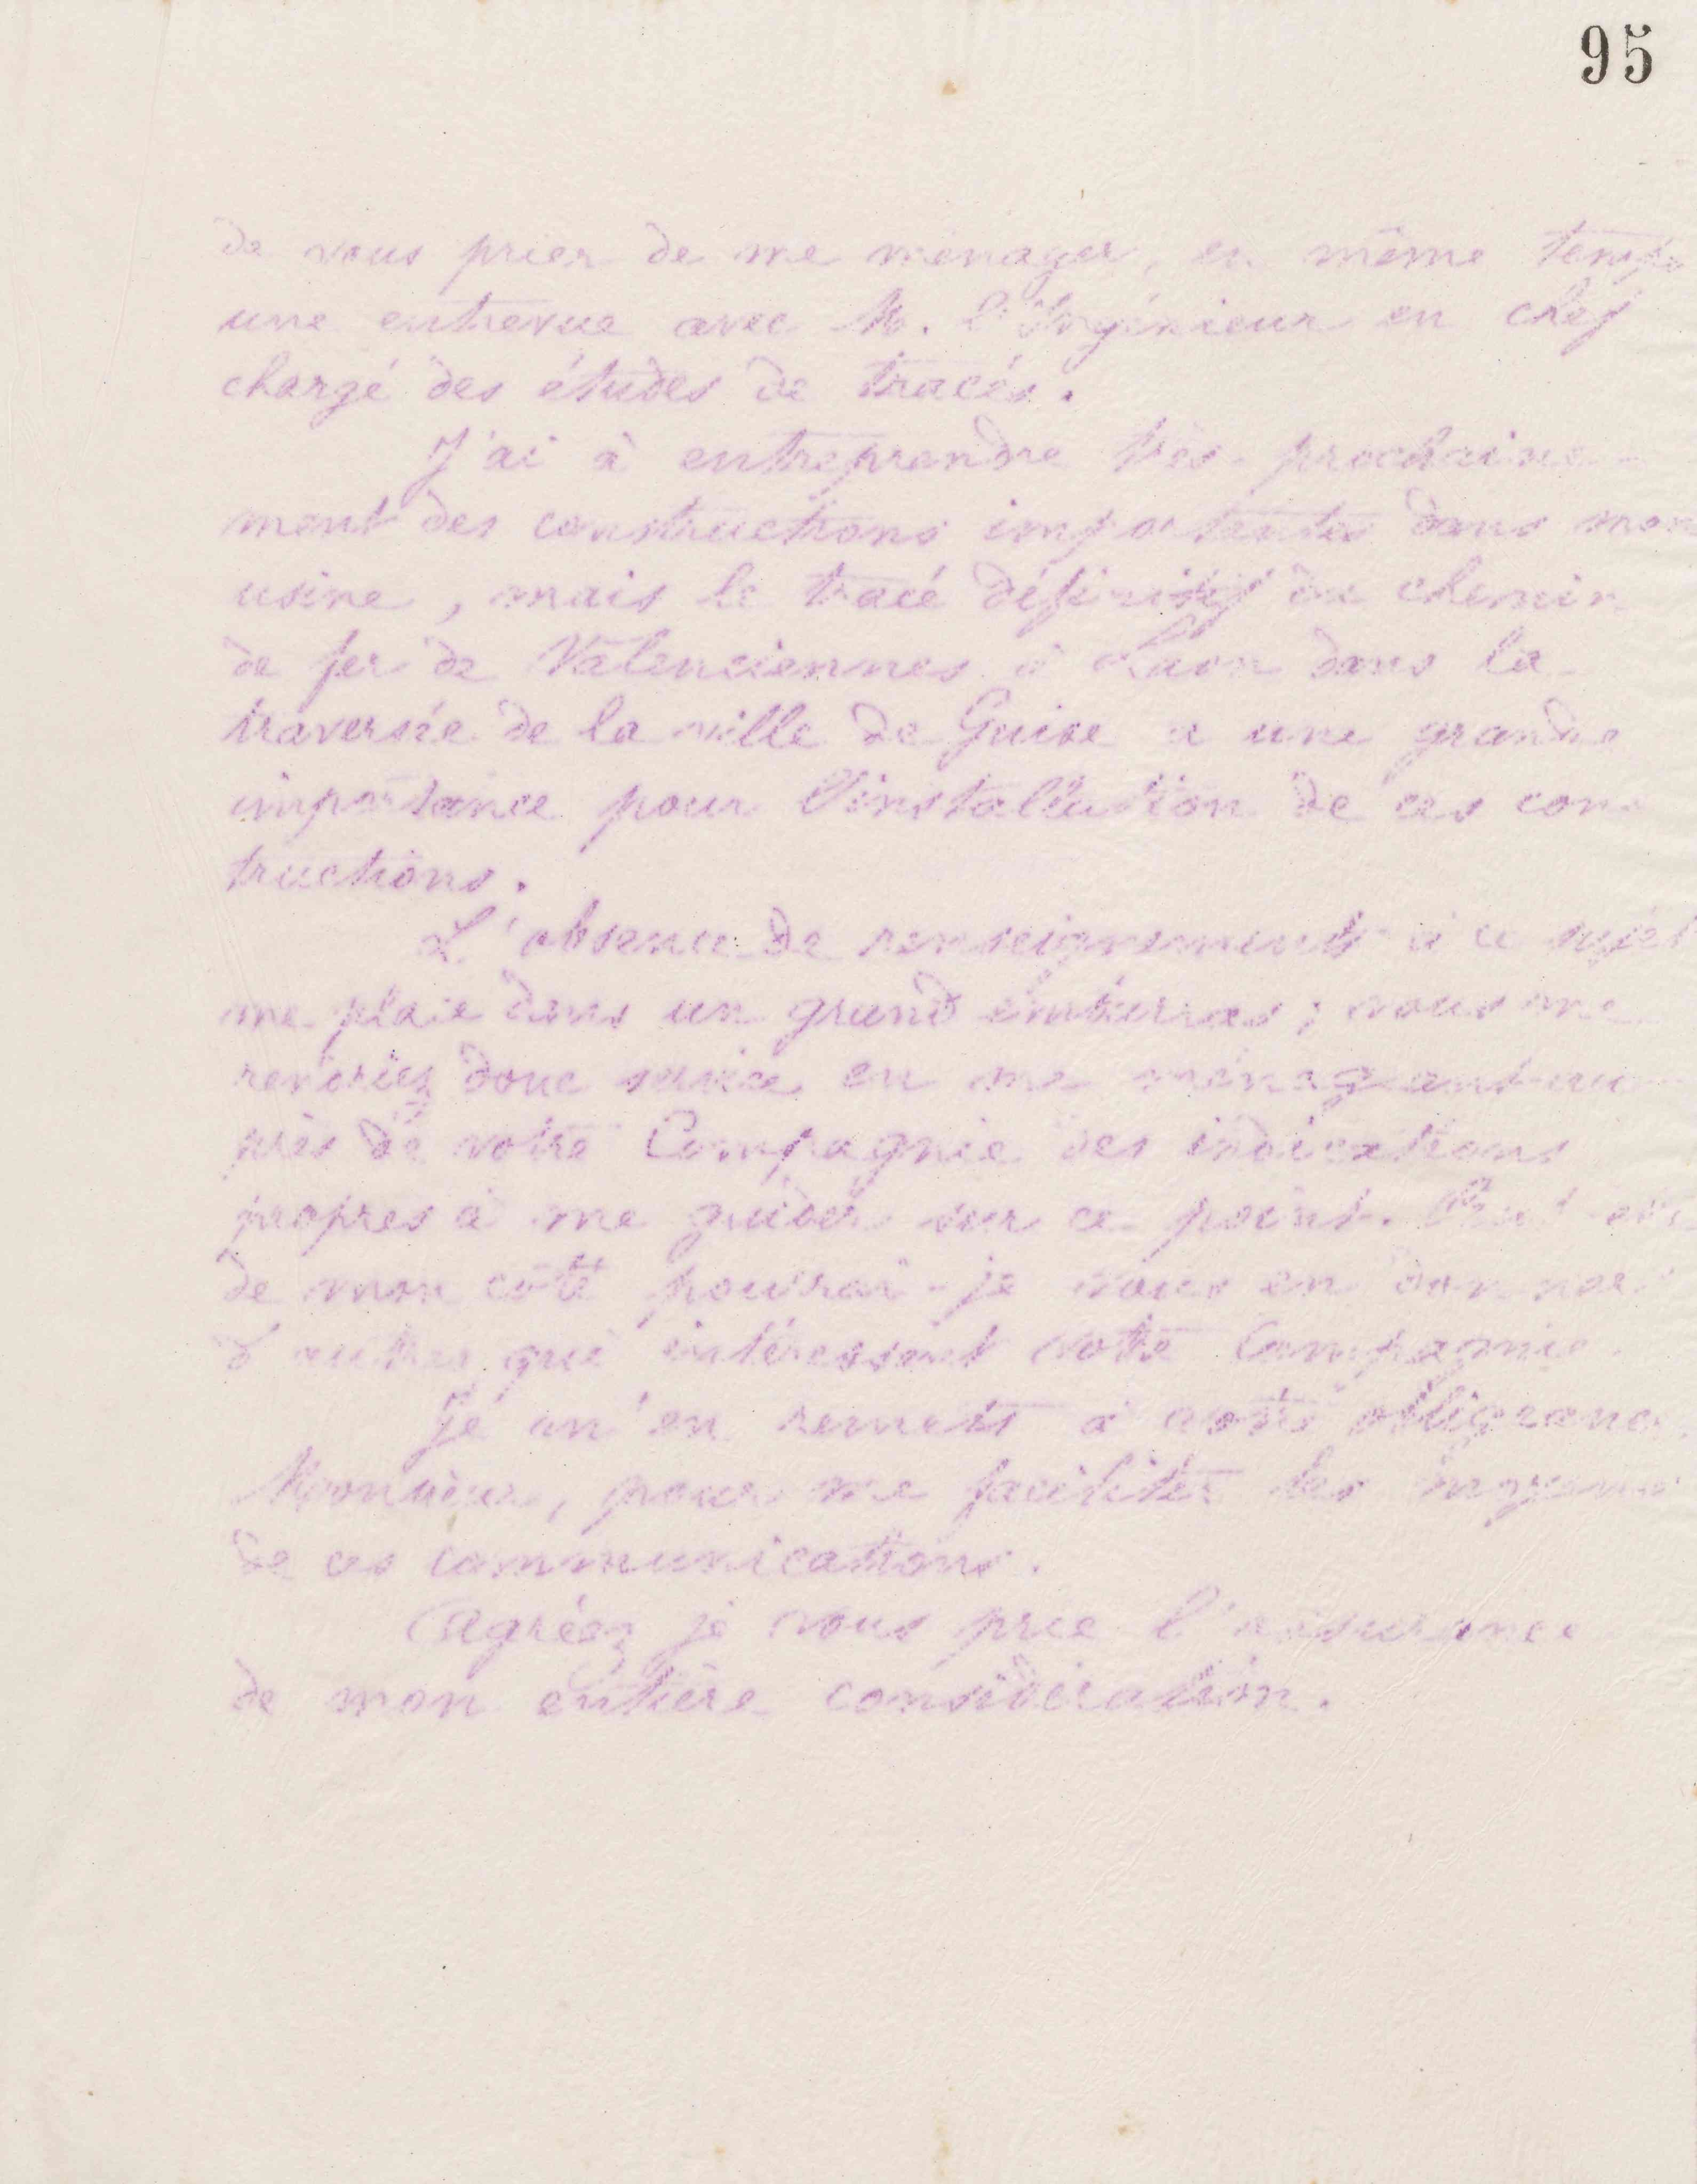 95
de vous prier de me ménager, en même temps
une entrevue avec M. l'Ingénieur en chef
chargé des études de tracés.
J'ai à entreprendre très-prochaine-
ment des constructions importantes dans mon
usine, mais le tracé définitif du chemin
de fer de Valenciennes à Laon dans la
traversée de la ville de Guise a une grande
importance pour l'installation de ces cons
tructions.
L'absence de renseignements à ce sujet
me place dans un grand embarras; vous me
rendriez donc service en me ménageant au
près de votre Compagnie des indications
propres à me guider sur ce point. Peut-être
de mon côté pourrai-je vous en donner
d'autres qui intéressent votre Compagnie.
Je m'en remets à votre obligeance
Monsieur, pour me faciliter les moyens
de ces communications.
Agréez je vous prie l'assurance
de mon entière considération.